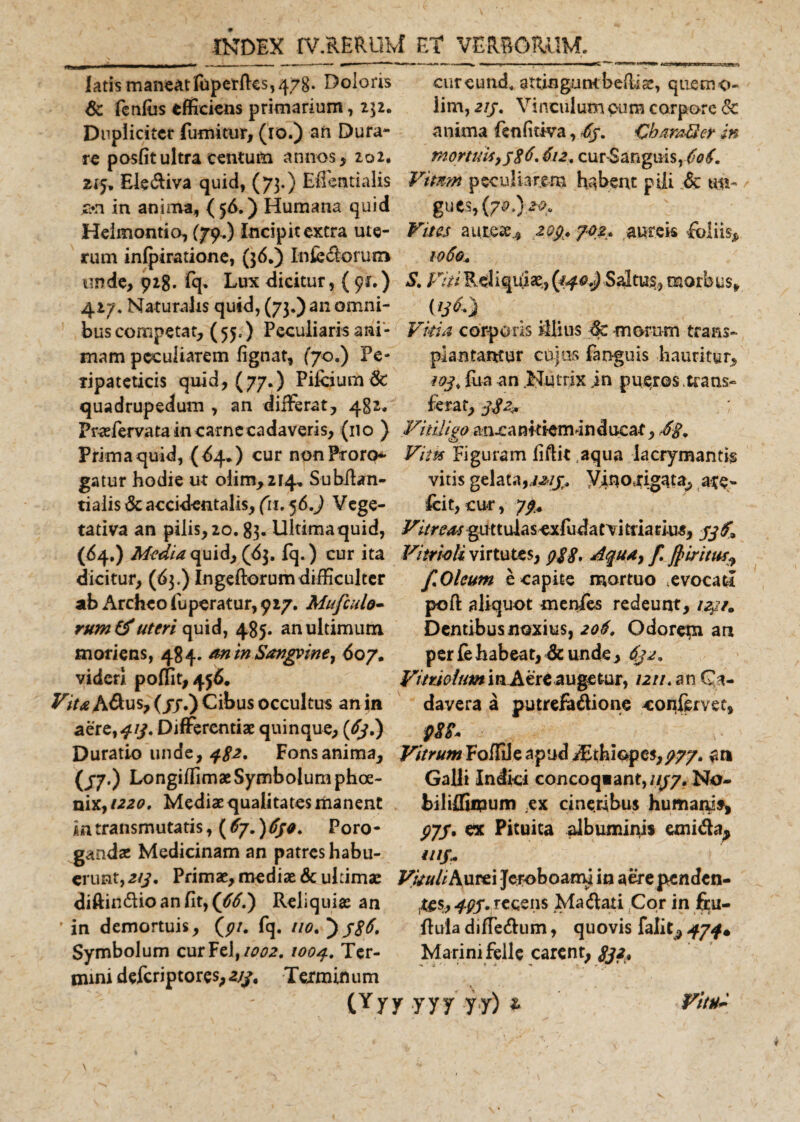 INDEX IV.RERUM ET VERBORUM.
latis maneat ſuperſtes, 478. Doloris
& ſenſus efficiens primarium, 232.
Dupliciter ſumitur, (10.) an Dura-
re posſit ultra centum annos, 202.
215. Elećtiva quid, (73.) Eſſentialis
an in anima, (56.) Humana quid
Helmontio, (79.) Incipit extra ute-
rum inſpiratione, (36.) Infećtorum
unde, 928. ſq. Lux dicitur, (91.)
427. Naturalis quid, (73.) an omni-
bus competat, (55.) Peculiaris ani-
mam peculiarem ſignat, (70.) Pe-
ripateticis quid, (77.) Piſcium &
quadrupedum, an differat, 482.
Præſervata in carne cadaveris, (110 )
Prima quid, (64.) cur non Proro-
gatur hodie ut olim, 214. Subſtan-
tialis & accidentalis, (11. 56.) Vege-
tativa an pilis, 20. 83. Ultima quid,
(64.) Media quid, (63. ſq.) cur ita
dicitur, (63.) Ingeſtorum difficulter
ab Archeo ſuperatur, 927. Muſculo-
rum & uteri quid, 485. an ultimum
moriens, 484. an in Sangvine, 607.
videri poſſit, 456.
Vitæ Aćtus, (55.) Cibus occultus an in
aëre, 413. Differentiæ quinque, (63.)
Duratio unde, 482. Fons anima,
(57.) Longiſſimæ Symbolum phœ-
nix, 1220. Mediæ qualitates manent
in transmutatis, (67.) 650. Poro-
gandæ Medicinam an patres habu-
erunt, 213. Primæ, mediæ & ultimæ
diſtinćtio an ſit, (66.) Reliquiæ an
in demortuis, (91. ſq. 110.) 586.
Symbolum cur Fel, 1002. 1004. Ter-
mini deſcriptores, 213. Terminum
cur eund. attingunt beſtiæ, quem o-
lim, 215. Vinculum cum corpore &
anima ſenſitiva, 65. Charaćter in
mortuis, 586. 612. cur Sanguis, 606.
Vitam peculiarem habent pili & un-
gues, (70.) 20.
Vites aureæ, 209. 702. aureis foliis,
1060.
S. Viti Reliquiæ, (140.) Saltus, morbus,
(136.)
Vitia corporis illius & morum trans-
plantantur cujus ſanguis hauritur,
103. ſua an Nutrix in pueros trans-
ferat, 382.
Vitiligo an canitiem inducat, 68.
Vitis Figuram ſiſtit aqua lacrymantis
vitis gelata, 1215. Vino rigata, are-
ſcit, cur, 79.
Vitreas guttulas exſudat vitriarius, 536.
Vitrioli virtutes, 988. Aqua, ſ. ſpiritus,
ſ. Oleum è capite mortuo evocati
poſt aliquot menſes redeunt, 1231.
Dentibus noxius, 206. Odorem an
per ſe habeat, & unde, 632.
Vitriolum in Aëre augetur, 1211. an Ca-
davera à putrefaćtione conſervet,
988.
Vitrum Foſſile apud Æthiopes, 977. an
Galli Indici concoquant, 1157. No-
biliſſimum ex cineribus humanis,
975. ex Pituita albuminis emićta,
1115.
Vituli Aurei Jeroboami in aëre penden-
tes, 495. recens Maćtati Cor in fru-
ſtula diſſećtum, quovis ſalit, 474.
Marini felle carent, 832.
(Yyy yyy yy) 2 Vitu-